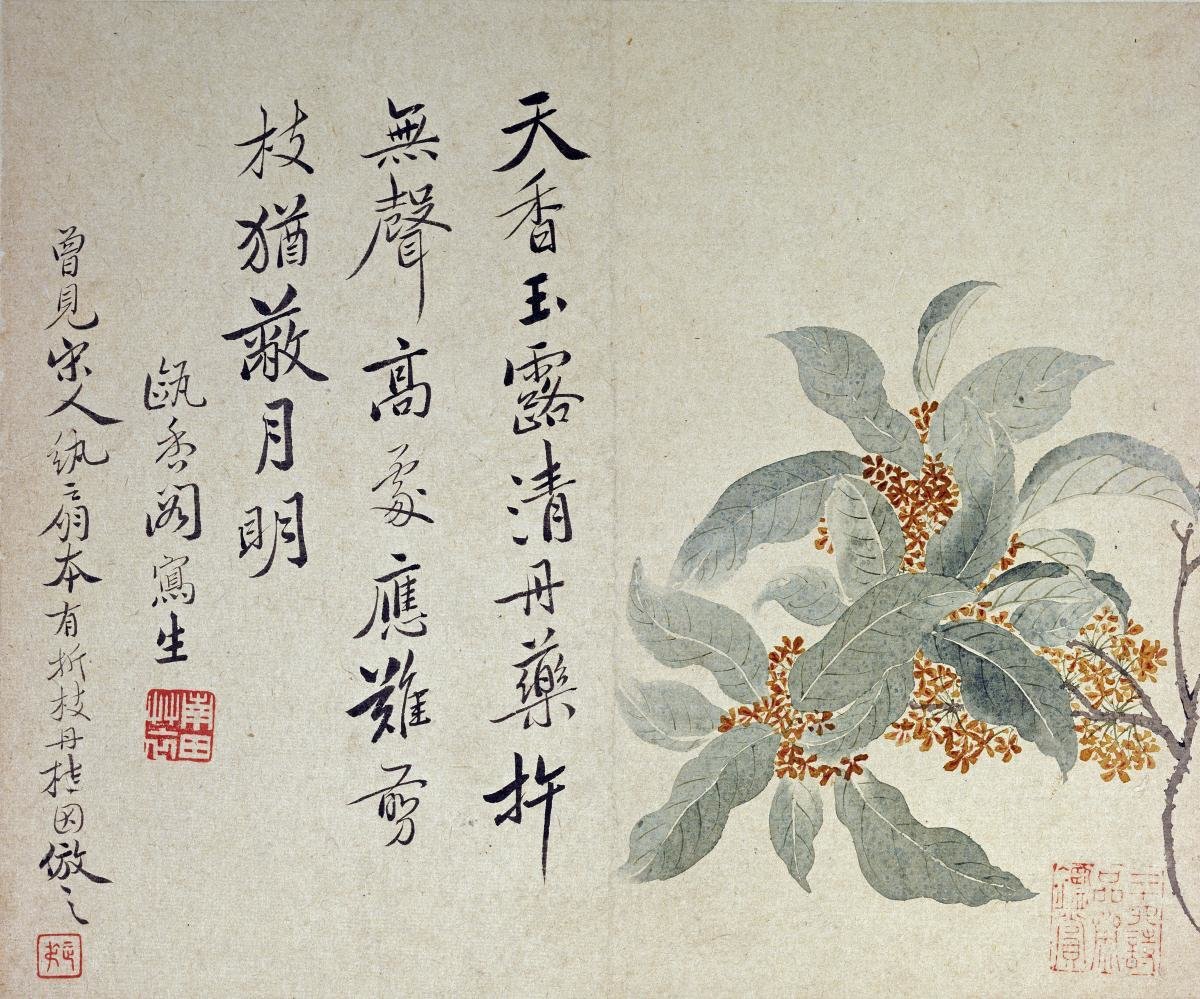 天香玉露清丹藥杵
無聲高處應難剪
枝猶蔽月明
甌香閣寫生
曾見宋人紈扇本有折枝丹桂因倣之
南田艸衣